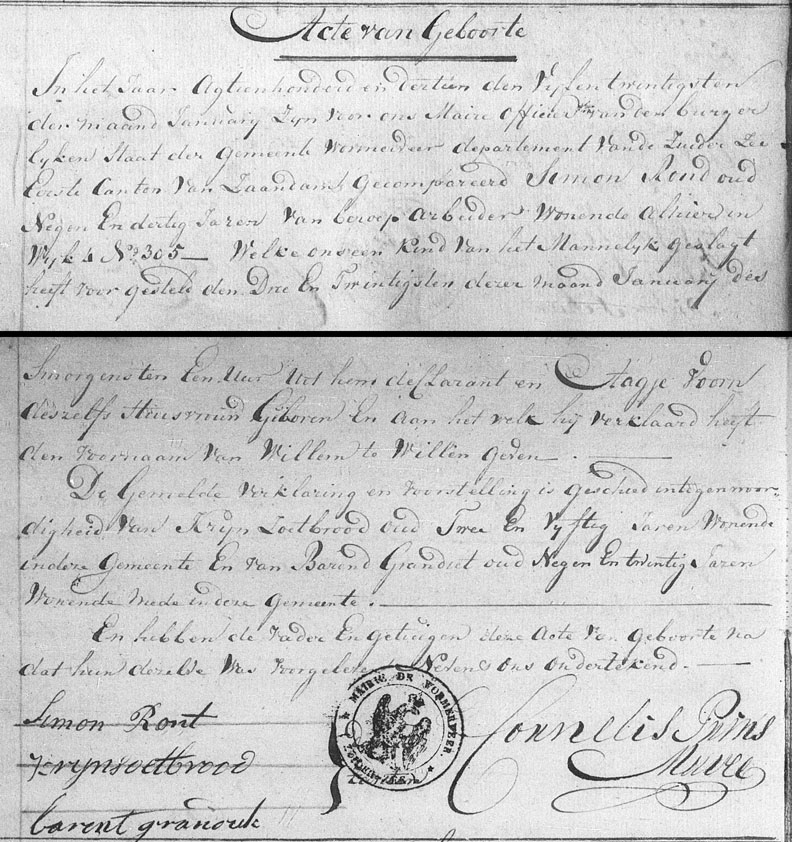 Acte van Geboorte
In het Jaar Agtienhonderd en dertien den Vyf en twintigsten
der maand January Zyn voor ons Maire Officier van den burger
lyken Staat der Gemeente Wormerveer departement Van de Zuider Zee
Eerste Canton Van Zaandam, Gecompareerd Simon Roud oud
Negen En dertig Jaren Van beroep Arbeider Wonende Alhier in
Wyk 4 No 305 — Welke ons een Kind Van het Mannelyk Geslagt
heeft voor gesteld den Drie En Twintigsten dezer maand January des
Smorgens ten Een Uur Uit hem declarant en Aagje Voorn
deszelfs Huisvrouw Geboren En aan het welk hij verklaard heeft
den voornaam Van Willem te Willen geven —
De Gemelde verklaring en voorstelling is geschied in tegenwoor-
digheid Van Kryn Zoetbrood oud Twee En Vyftig Jaren Wonende
in deze Gemeente En van Barend Grandiet oud Negen En twintig Jaren
Wonende mede in deze Gemeente. —
En hebben de vader En getuigen deze Acte Van Geboorte na
dat hun dezelve Was voorgelezen Nevens ons Onder tekend. —
Simon Rout
krynsoetbrood
barent granouk
MAIRIE DE WORMERVEER
ZUIDERZEE
Cornelis Prins
Maire